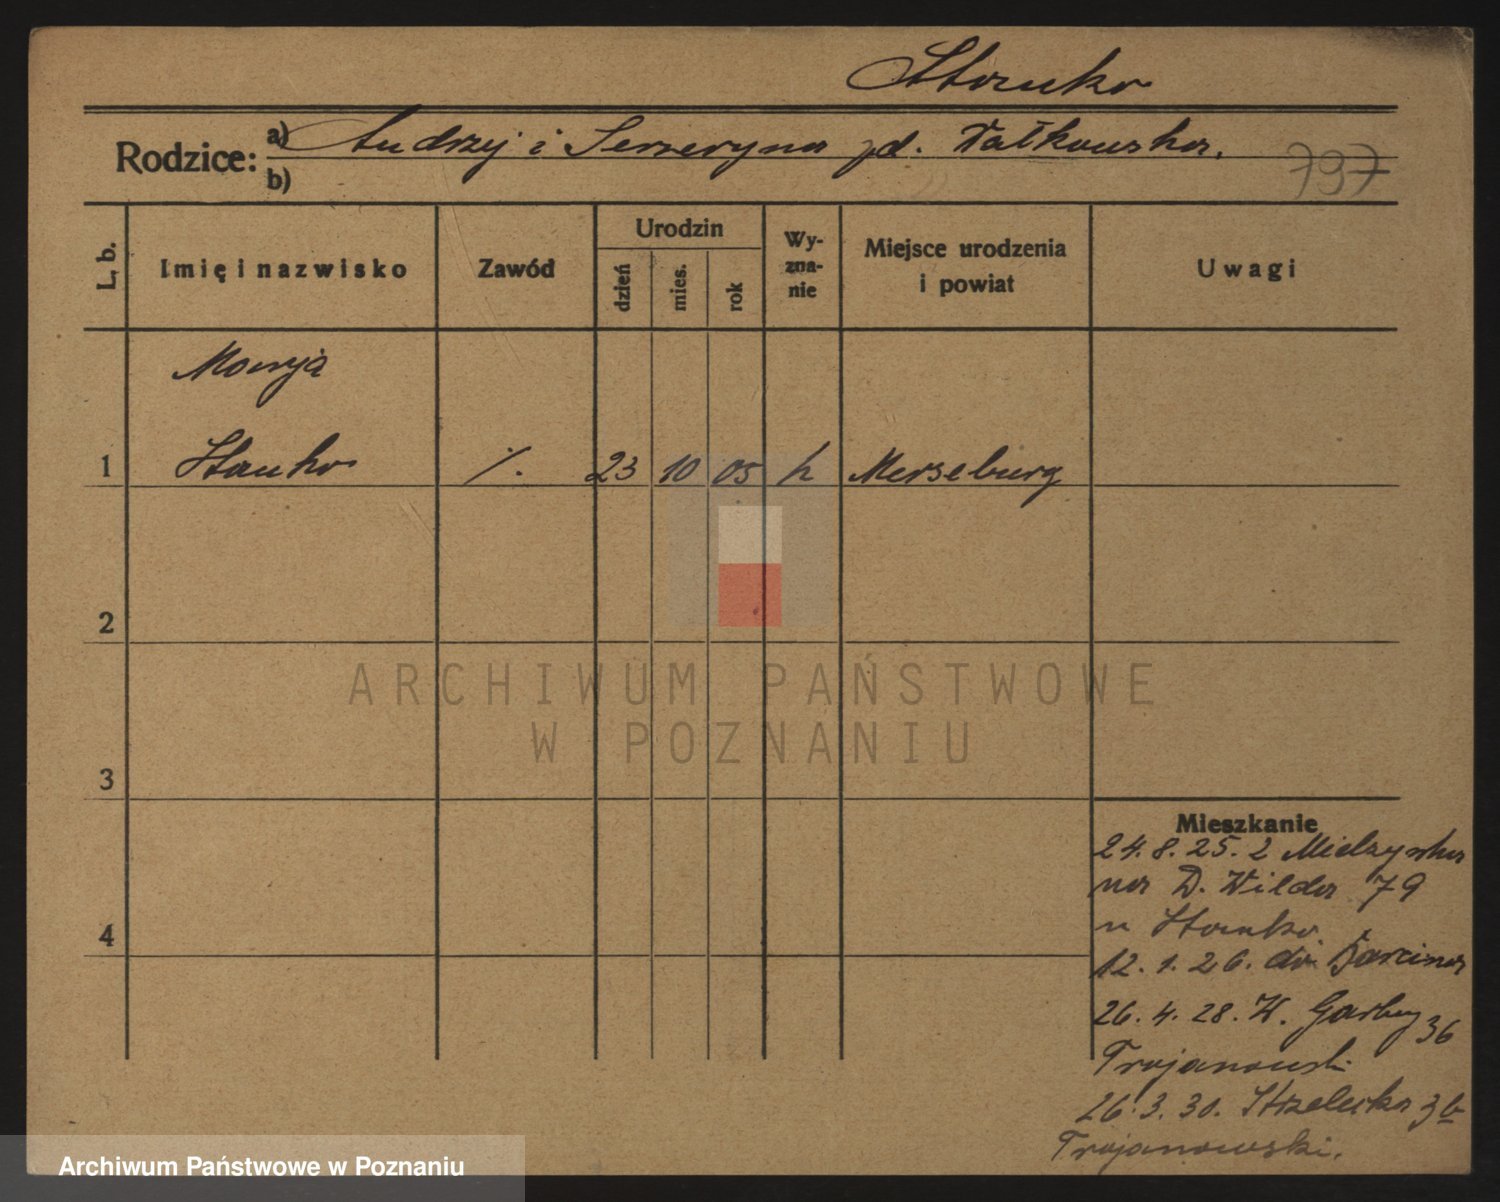 Stanko
Rodzice: a) Andrzej i Seweryna zd. Wałkowska.
b)
797
L. b.
Imię i nazwisko
Zawód
Urodzin
dzień
mies.
rok
Wy-
zna-
nie
Miejsce urodzenia
i powiat
Uwagi
Maryja
1 Stanko ./. 23 10 05 k Merseburg
2
3
4
ARCHIWUM PAŃSTWOWE
W POZNANIU
Mieszkanie
24.8.25. z Mielżyńska
na D. Wilda 79
u Stanko
12.1.26. do Barcina
26.4.28. W. Garbary 36
Trojanowski
26.3.30. Strzelecka 3b
Trojanowski.
Archiwum Państwowe w Poznaniu